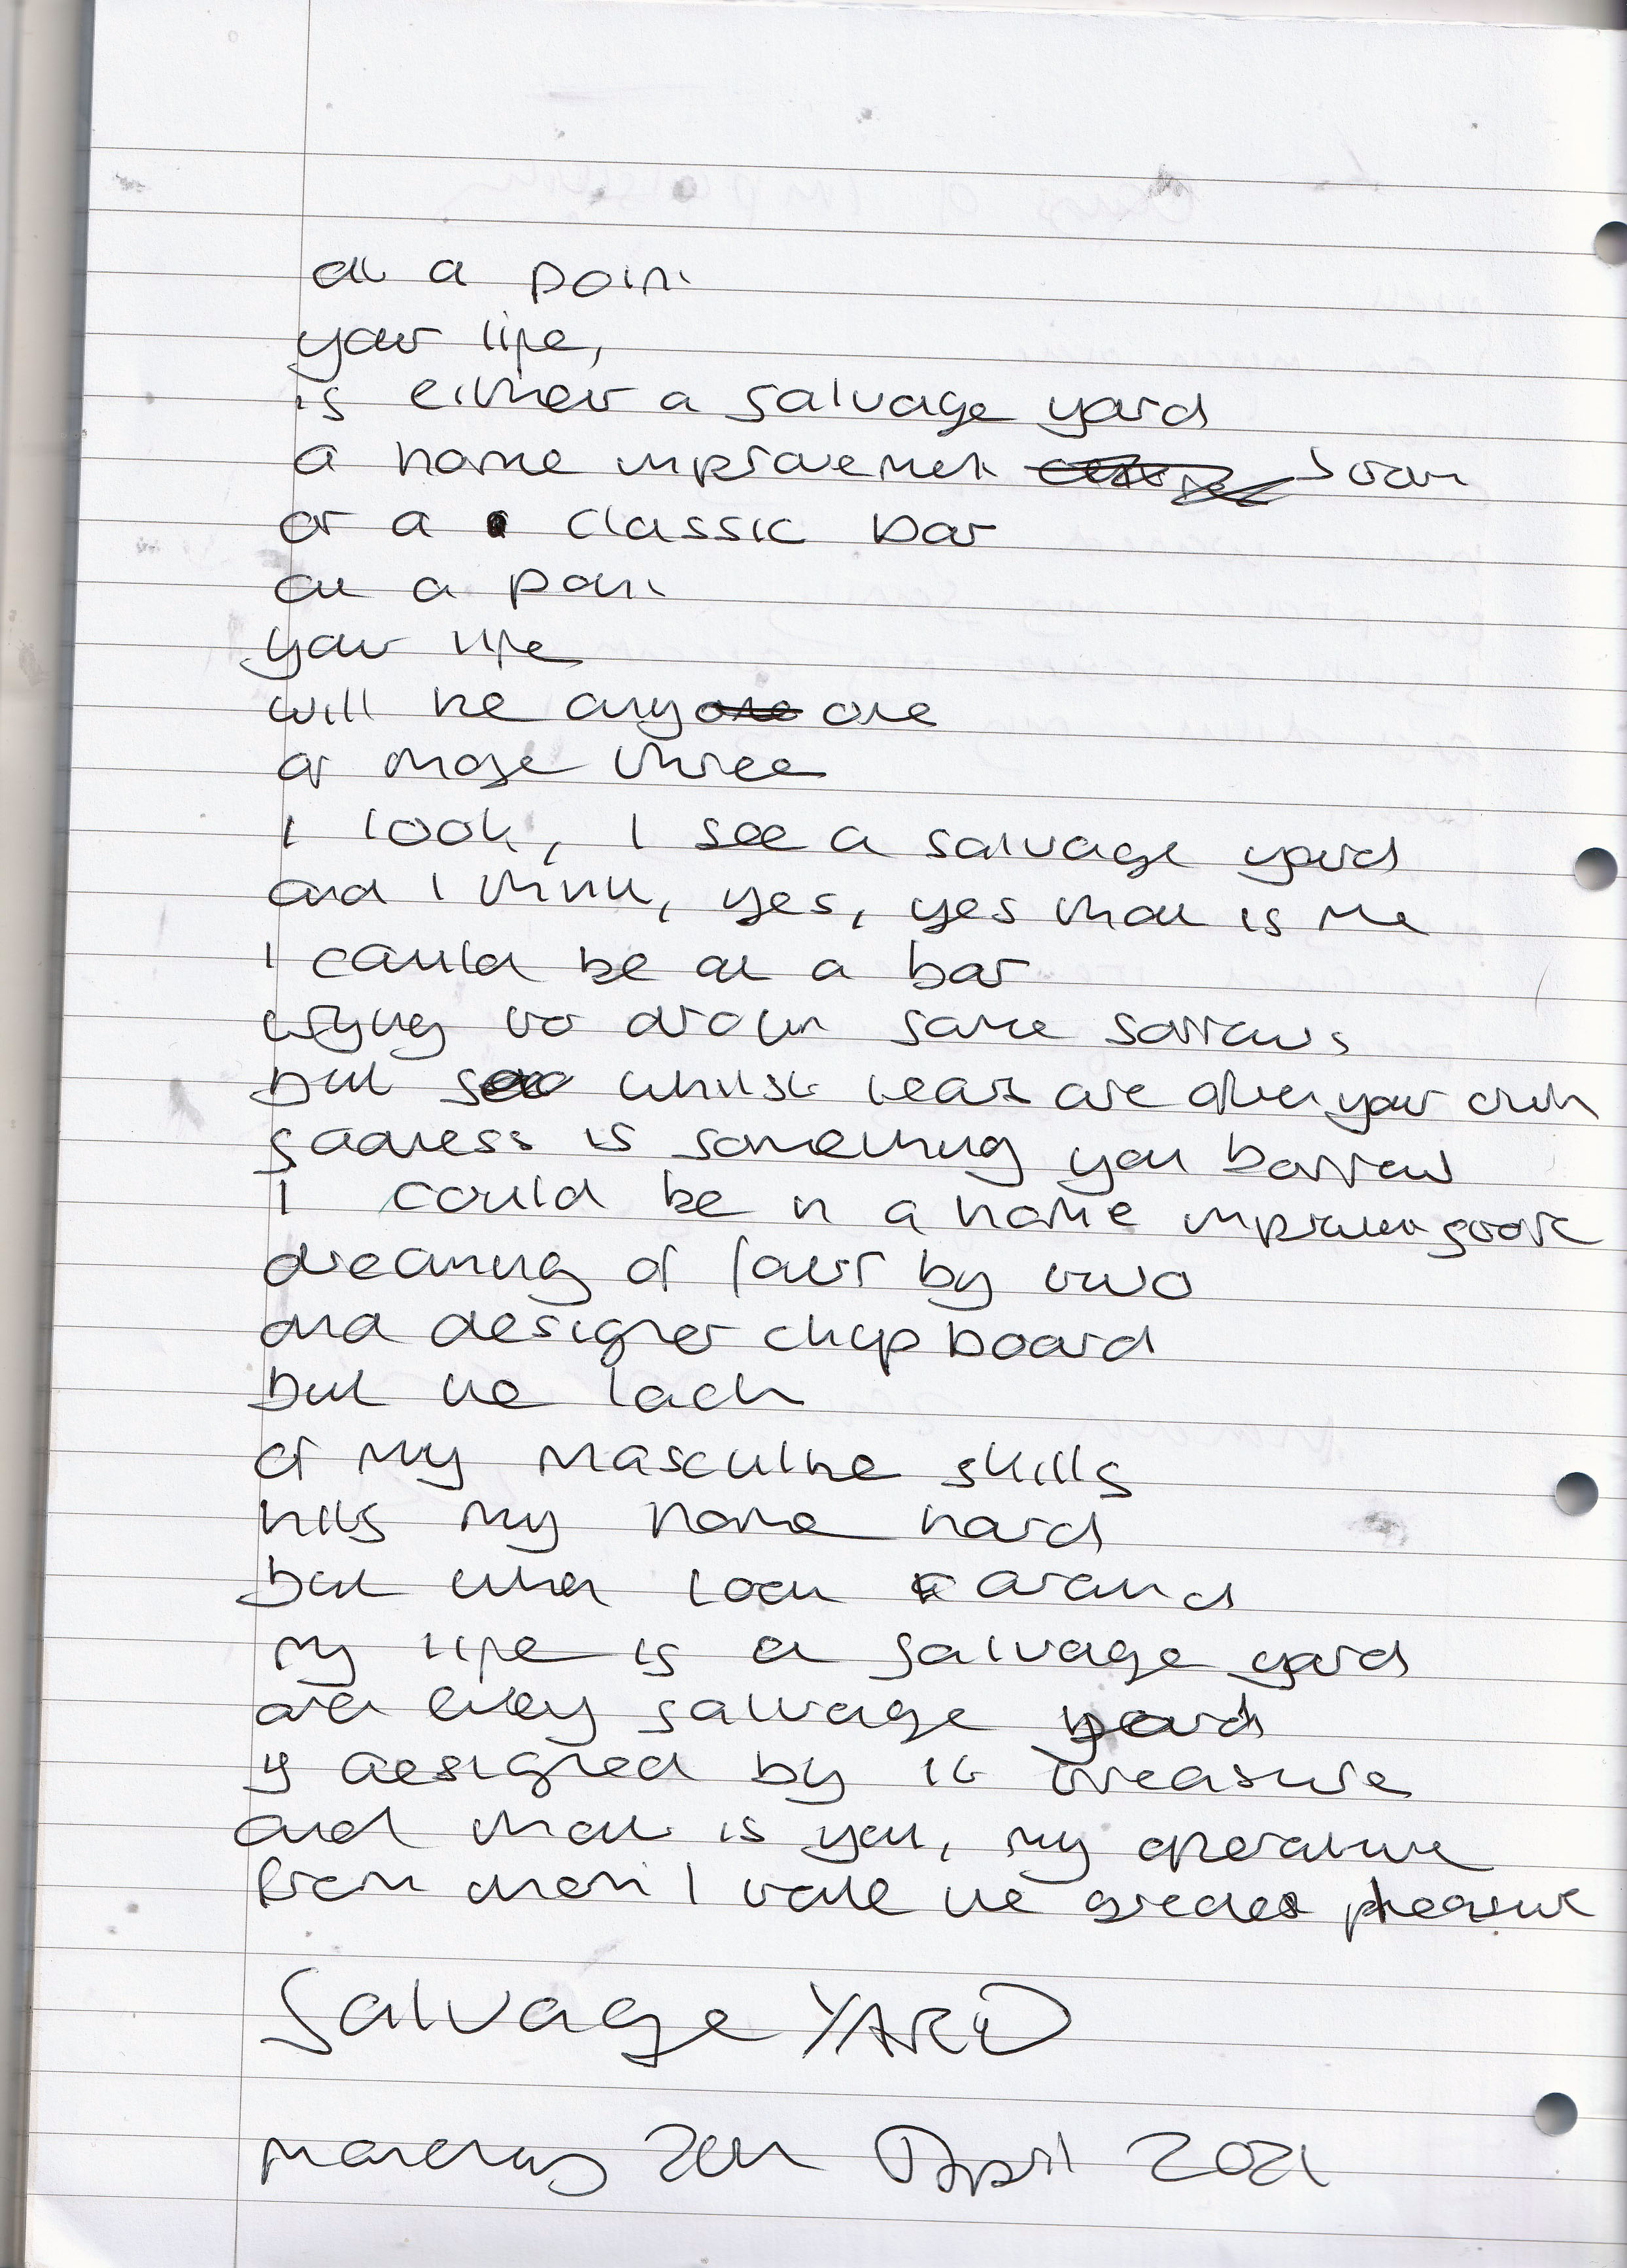 at a point
your life,
is either a salvage yard
a home improvement store
or a classic bar
at a point
your life
will be any one
of those three
I look, I see a salvage yard
and I think, yes, yes that is me
I could be at a bar
trying to drown some sorrows
but whilst tears are often your own
sadness is something you borrow
I could be in a home improvement store
dreaming of four by two
and designer chipboard
but the lack
of my masculine skills
hits my home hard
but when look around
my life is a salvage yard
and every salvage yard
is designed by its treasure
and that is you, my
from whom I take the greatest pleasure
Salvage YARD
April 2021